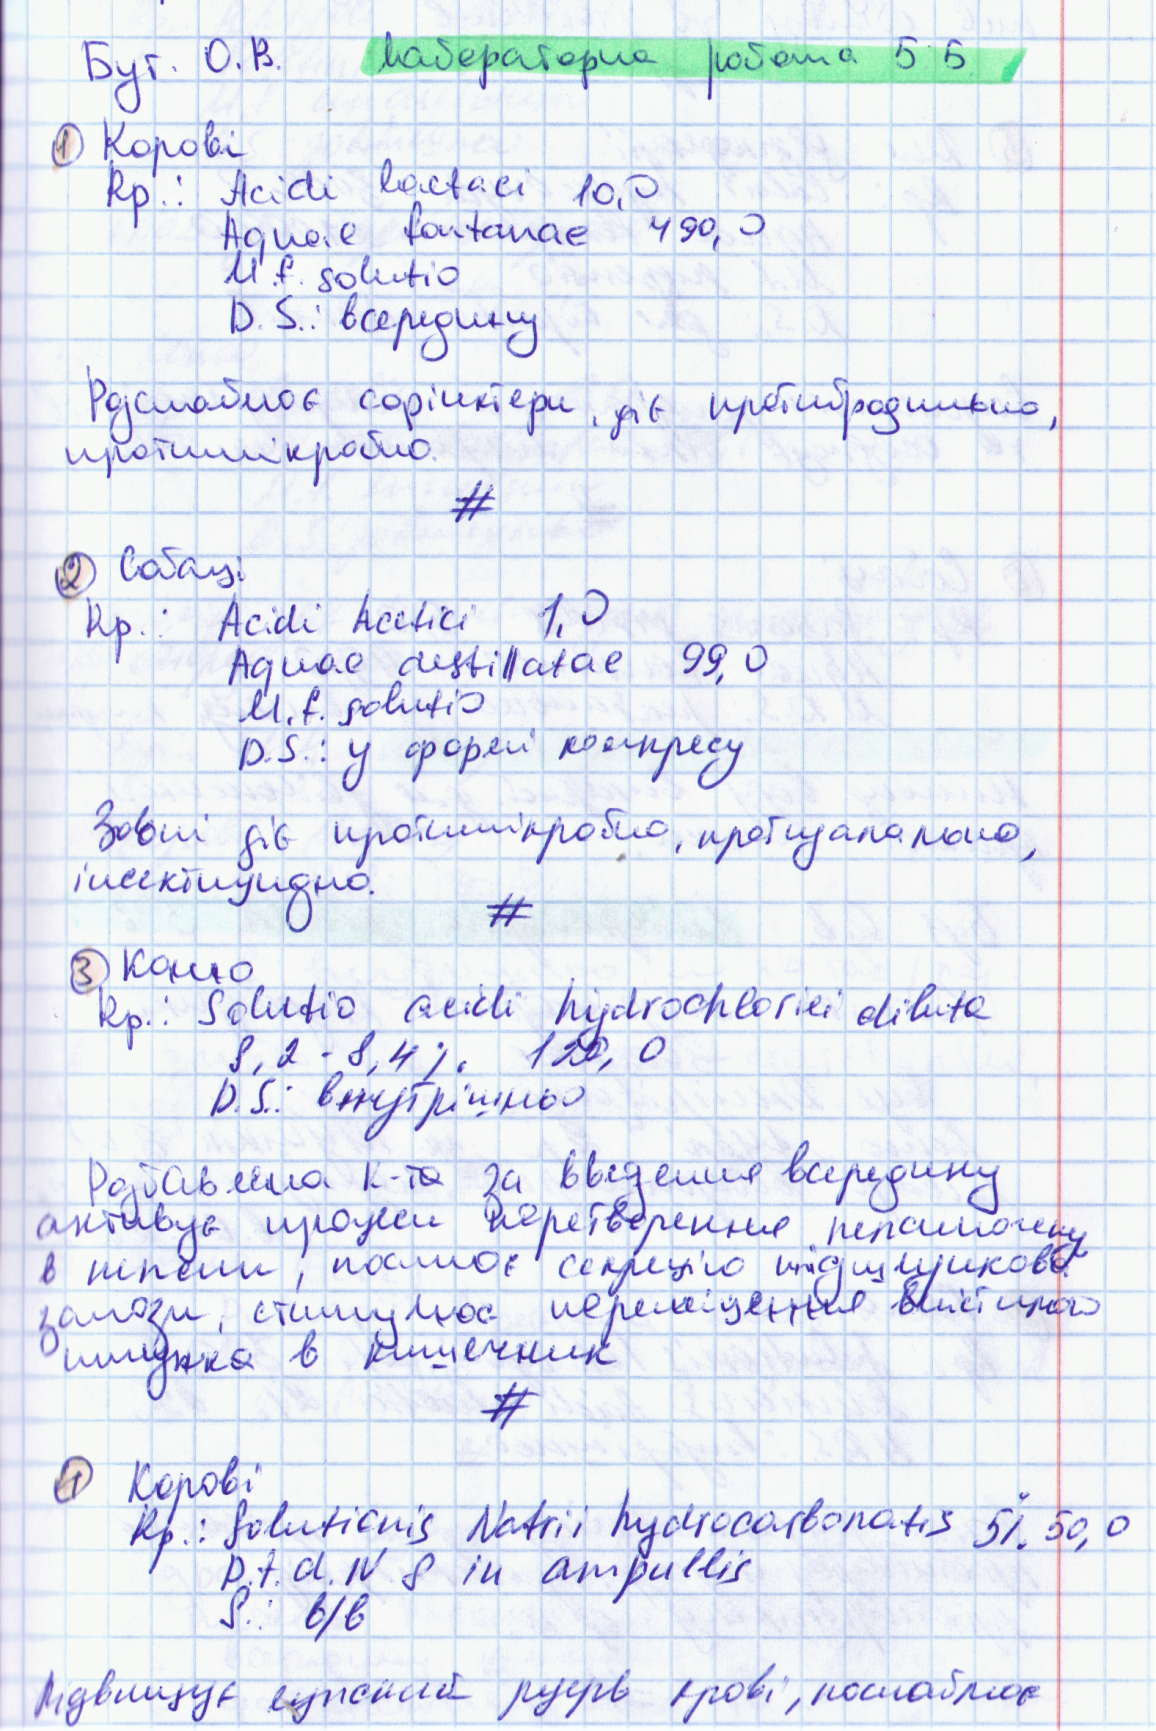 Бут. О.В. Лабораторна робота 5 Б
① Корові
Rp.: Acidi lactaci 10,0
Aquae fontanae 490,0
M.f. solutio
D.S.: всередину
Розслаблює сфінктери, діє протибродильно,
протимікробно.
#
② Собаці
Rp.: Acidi Acetici 1,0
Aquae destillatae 99,0
M.f. solutio
D.S.: у формі компресу
Зовні діє протимікробно, протизапально,
інсектицидно.
#
③ Коню
Rp.: Solutio acidi hydrochlorici diluta
8,2 - 8,4 %. 120,0
D.S.: внутрішньо
Розбавлена к-та за введення всередину
активує процеси перетворення пепсиногену
в пепсин, посилює секрецію підшлункової
залози, стимулює переміщення вмістимого
шлунка в кишечник
#
④ Корові
Rp.: Solutionis Natrii hydrocarbonatis 5%. 50,0
D.t.d. N 8 in ampullis
S.: в/в
Підвищує лужний резерв крові, послаблює